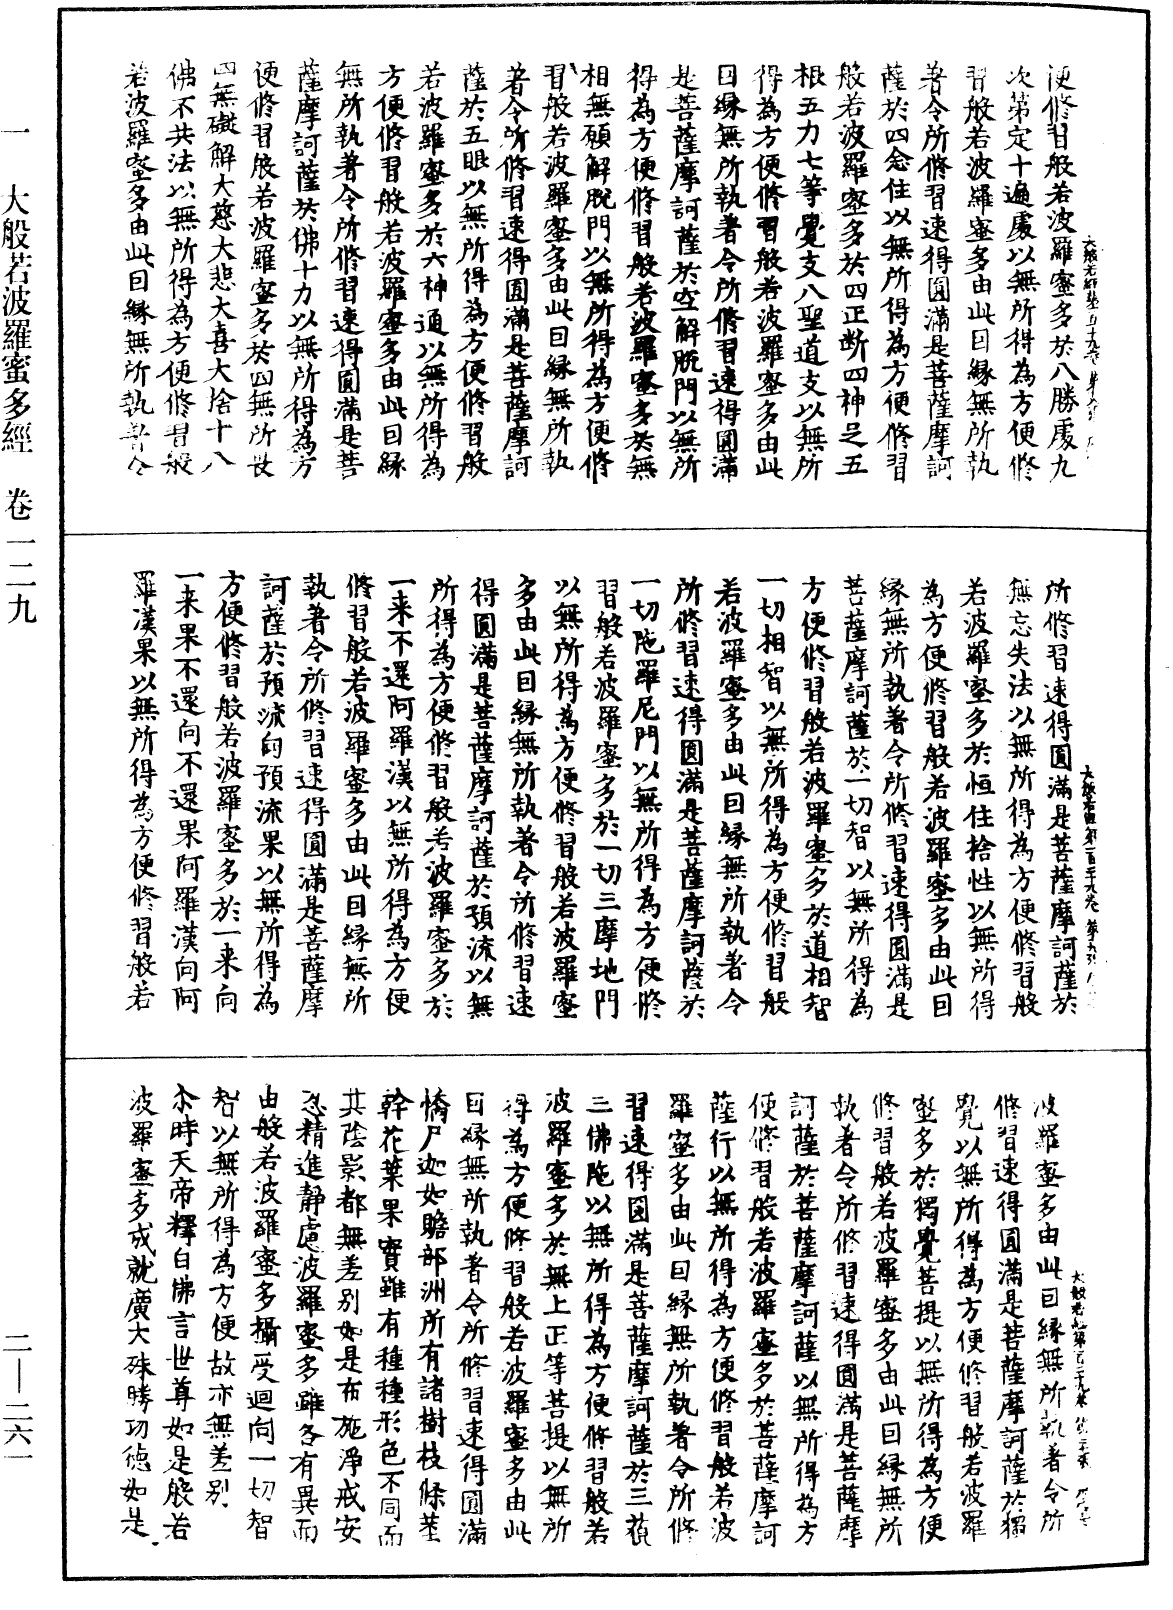 一 大般若波羅蜜多經 卷一二九
二—二六一
便修習般若波羅蜜多於八勝處九
次第定十遍處以無所得為方便修
習般若波羅蜜多由此因緣無所執
著令所修習速得圓滿是菩薩摩訶
薩於四念住以無所得為方便修習
般若波羅蜜多於四正斷四神足五
根五力七等覺支八聖道支以無所
得為方便修習般若波羅蜜多由此
因緣無所執著令所修習速得圓滿
是菩薩摩訶薩於空解脫門以無所
得為方便修習般若波羅蜜多於無
相無願解脫門以無所得為方便修
習般若波羅蜜多由此因緣無所執
著令所修習速得圓滿是菩薩摩訶
薩於五眼以無所得為方便修習般
若波羅蜜多於六神通以無所得為
方便修習般若波羅蜜多由此因緣
無所執著令所修習速得圓滿是菩
薩摩訶薩於佛十力以無所得為方
便修習般若波羅蜜多於四無所畏
四無礙解大慈大悲大喜大捨十八
佛不共法以無所得為方便修習般
若波羅蜜多由此因緣無所執著令
所修習速得圓滿是菩薩摩訶薩於
無忘失法以無所得為方便修習般
若波羅蜜多於恒住捨性以無所得
為方便修習般若波羅蜜多由此因
緣無所執著令所修習速得圓滿是
菩薩摩訶薩於一切智以無所得為
方便修習般若波羅蜜多於道相智
一切相智以無所得為方便修習般
若波羅蜜多由此因緣無所執著令
所修習速得圓滿是菩薩摩訶薩於
一切陁羅尼門以無所得為方便修
習般若波羅蜜多於一切三摩地門
以無所得為方便修習般若波羅蜜
多由此因緣無所執著令所修習速
得圓滿是菩薩摩訶薩於預流以無
所得為方便修習般若波羅蜜多於
一来不還阿羅漢以無所得為方便
修習般若波羅蜜多由此因緣無所
執著令所修習速得圓滿是菩薩摩
訶薩於預流向預流果以無所得為
方便修習般若波羅蜜多於一来向
一来果不還向不還果阿羅漢向阿
羅漢果以無所得為方便修習般若
波羅蜜多由此因緣無所執著令所
修習速得圓滿是菩薩摩訶薩於獨
覺以無所得為方便修習般若波羅
蜜多於獨覺菩提以無所得為方便
修習般若波羅蜜多由此因緣無所
執著令所修習速得圓滿是菩薩摩
訶薩於菩薩摩訶薩以無所得為方
便修習般若波羅蜜多於菩薩摩訶
薩行以無所得為方便修習般若波
羅蜜多由此因緣無所執著令所修
習速得圓滿是菩薩摩訶薩於三藐
三佛陁以無所得為方便修習般若
波羅蜜多於無上正等菩提以無所
得為方便修習般若波羅蜜多由此
因緣無所執著令所修習速得圓滿
憍尸迦如贍部洲所有諸樹枝條莖
幹花葉果實雖有種種形色不同而
其陰影都無差別如是布施淨戒安
忍精進靜慮波羅蜜多雖各有異而
由般若波羅蜜多攝受迴向一切智
智以無所得為方便故亦無差別
尒時天帝釋白佛言世尊如是般若
波羅蜜多成就廣大殊勝功德如是